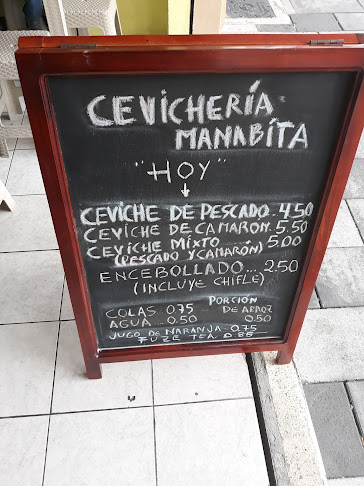 CEVICHERÍA
MANABÍTA
"HOY"
CEVICHE DE PESCADO..4.50
CEVICHE DE CAMARON.5.50
CEVICHE MIXTO ........ 5.00
(PESCADO Y CAMARÓN)
ENCEBOLLADO ... 2.50
(INCLUYE CHIFLE)
COLAS 0.75
AGUA 0.50
PORCIÓN
DE ARROZ
0.50
JUGO DE NARANJA - 0.75
FUZE TEA. 0.85